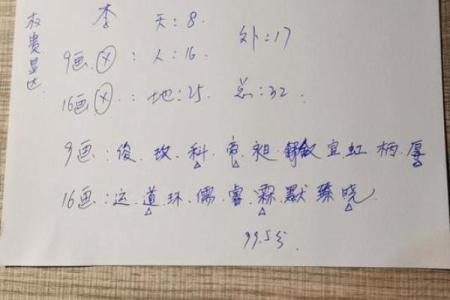 权贵显达
李 天:8 外:17
9画 ⓧ : 人:16
16画 ⓧ : 地:25 总:32
9画:俊 玫 科 帝 昶 叙 宜 虹 柄 厚
16画:运 道 环 儒 睿 霖 默 臻 晓
99.5分